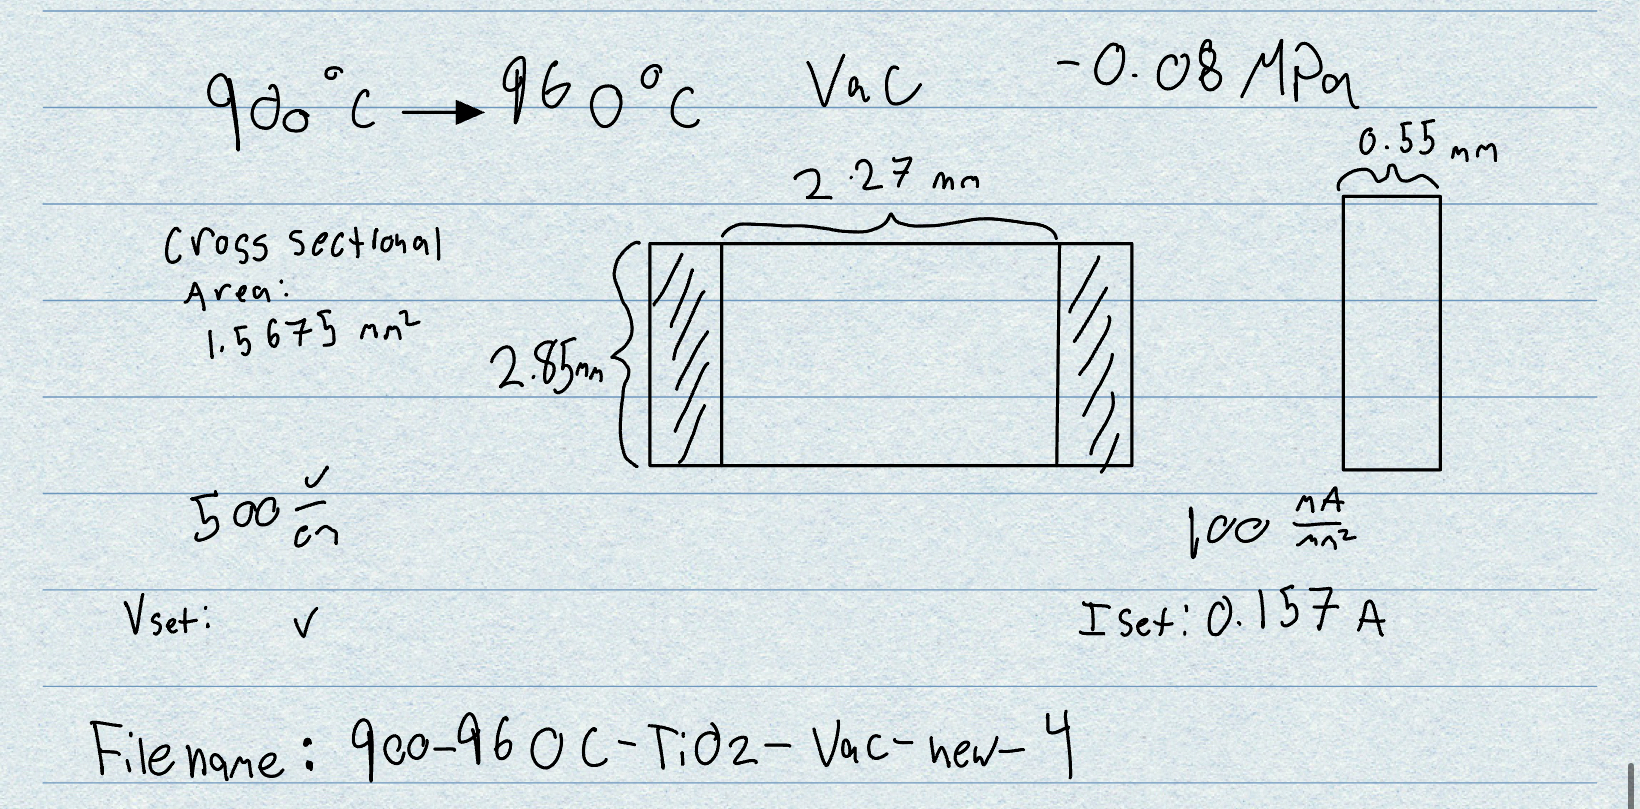 900°C → 960°C Vac -0.08 MPa
0.55 mm
2.27 mm
Cross sectional
Area:
1.5675 mm²
2.85mm
500 V/cm
100 mA/mm²
Vset: V
I set: 0.157 A
Filename: 900-960C-TiO2-Vac-new-4